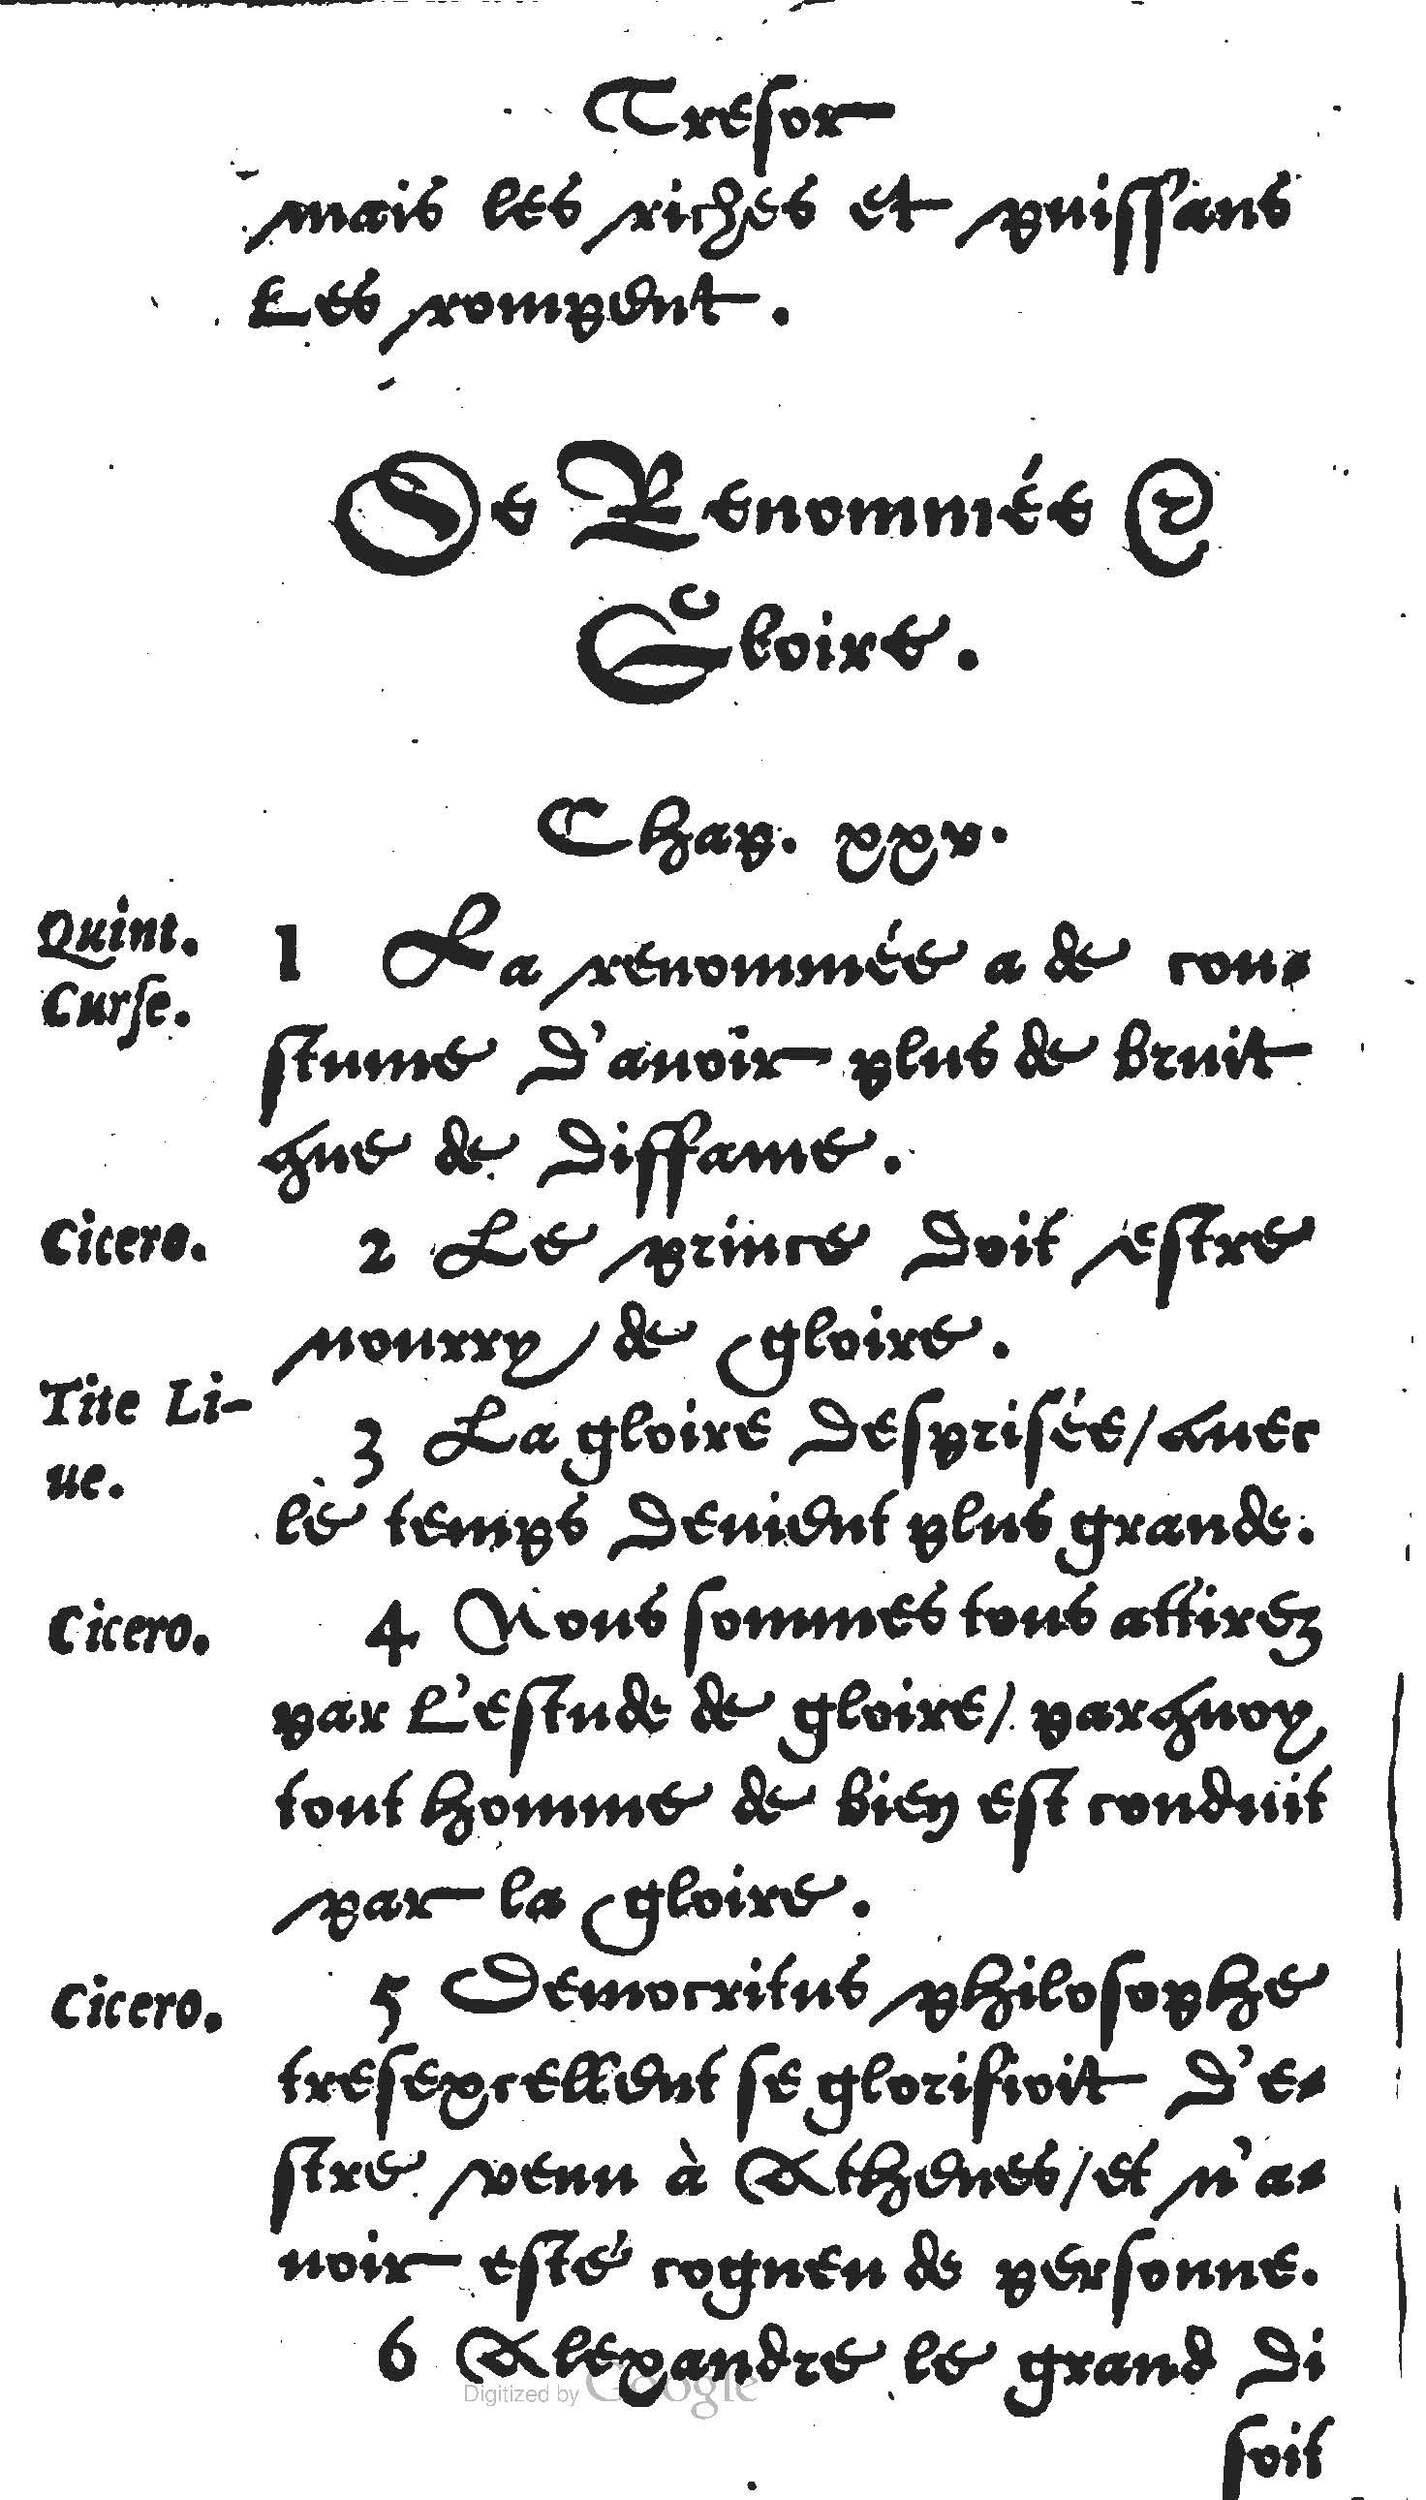 Tresor
mais les riches et puissans
Les rompent.
De Renommée &
Gloire.
Chap. xxv.
Quint.
Curse.
1 La renommée a de cou-
stume d'auoir plus de bruit
que de diffame.
Cicero.
2 Le prince doit estre
nourry de gloire.
Tite Li-
ue.
3 La gloire desprisée/ auec
le temps deuient plus grande.
Cicero.
4 Nous sommes tous attirez
par L'estude de gloire/ parquoy
tout homme de bien est conduit
par la gloire.
Cicero.
5 Democritus philosophe
tresexcellent se glorifioit d'e-
stre venu à Athenes/ et n'a-
uoir esté cogneu de personne.
6 Alexandre le grand di
soit
Digitized by Google